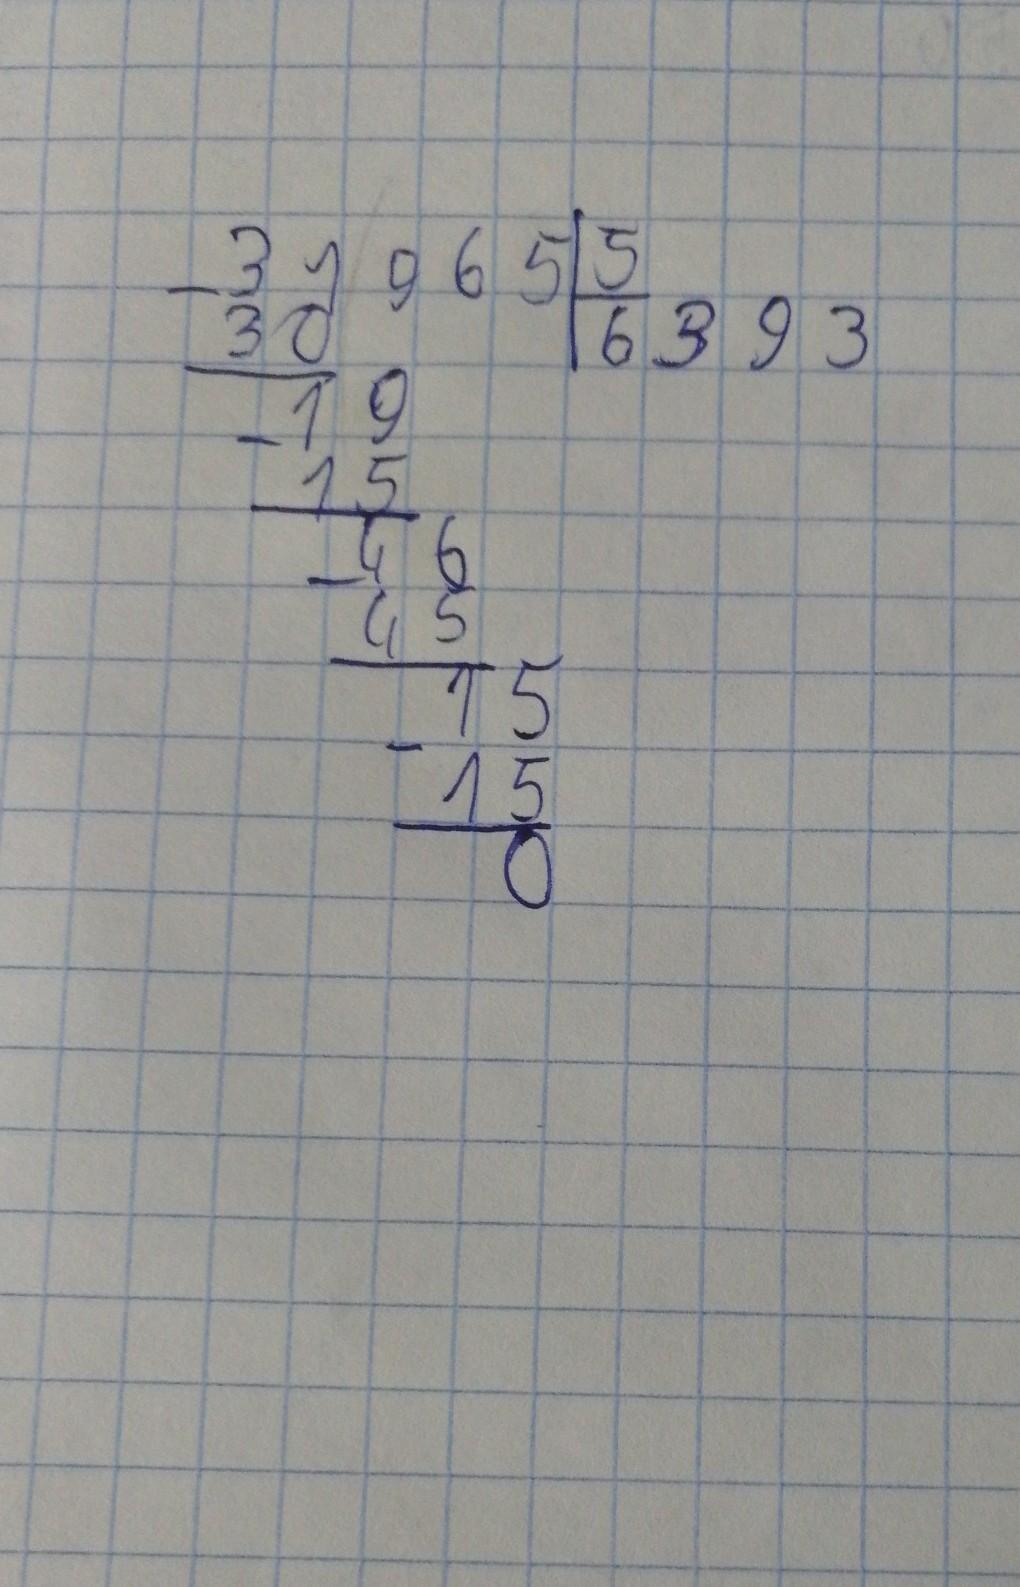 - 3 1 9 6 5 | 5
3 0 | 6 3 9 3
- 1 9
1 5
- 4 6
4 5
1 5
- 1 5
0